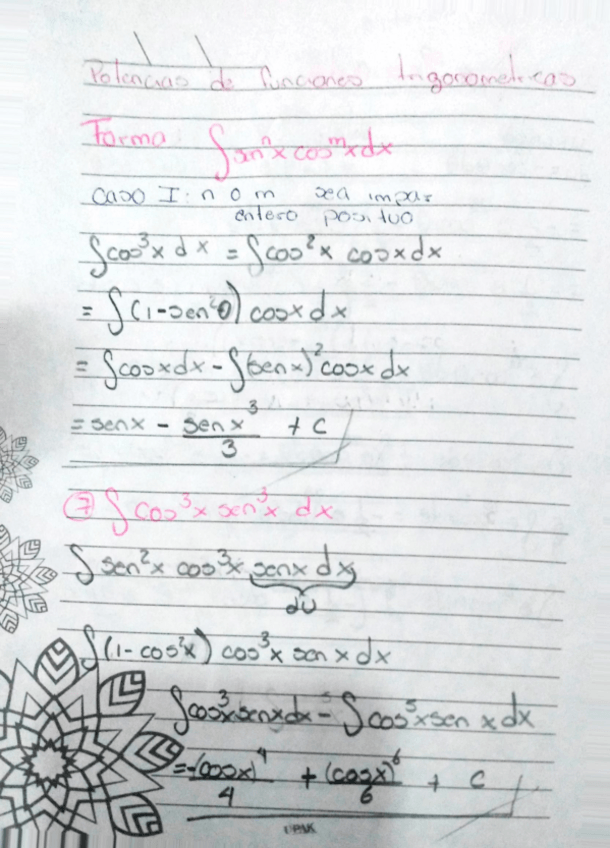 Potencias de funciones trigonometricas
Forma: ∫senⁿx cosᵐx dx
caso I: n o m sea impar
entero positivo
∫cos³x dx = ∫cos²x cosx dx
= ∫(1-sen²θ) cosx dx
= ∫cosxdx - ∫(senx)²cosx dx
= senx - senx³/3 + c
⑦ ∫cos³x sen³x dx
∫sen²x cos³x senx dx
du
∫(1-cos²x) cos³x senx dx
∫cos³x senx dx - ∫cos⁵x sen x dx
= -(cosx)⁴/4 + (cosx)⁶/6 + c